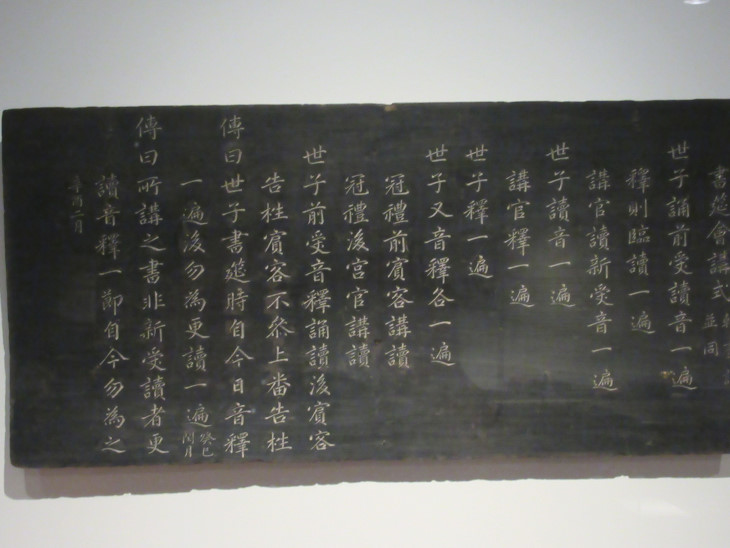 書筵會講式 並同
世子誦前受讀音一遍
釋則臨讀一遍
講官讀新受音一遍
世子讀音一遍
講官釋一遍
世子釋一遍
世子又音釋各一遍
冠禮前賓客講讀
冠禮後宮官講讀
世子前受音釋誦讀後賓客
告栍賓客不參上番告栍
傳曰世子書筵時自今日音釋
一遍後勿為更讀一遍 癸巳閏月
傳曰所講之書非新受讀者更
讀音釋一節自今勿為之
辛酉二月